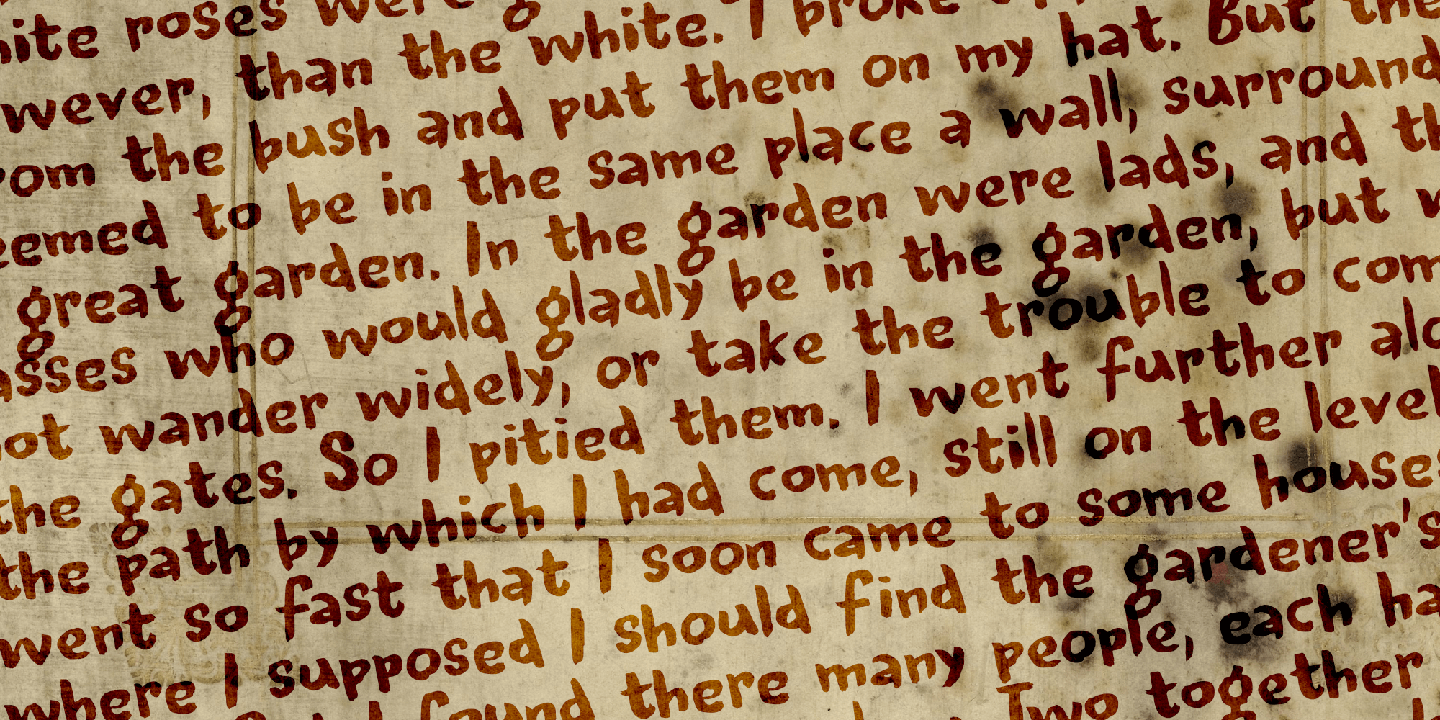 hite roses were g
wever, than the white. I broke
rom the bush and put them on my hat. But the
eemed to be in the same place a wall, surround
great garden. In the garden were lads, and th
asses who would gladly be in the garden, but w
ot wander widely, or take the trouble to com
the gates. So I pitied them. I went further alo
the path by which I had come, still on the level
went so fast that I soon came to some houses
where I supposed I should find the gardener's
I found there many people, each ha
Two together